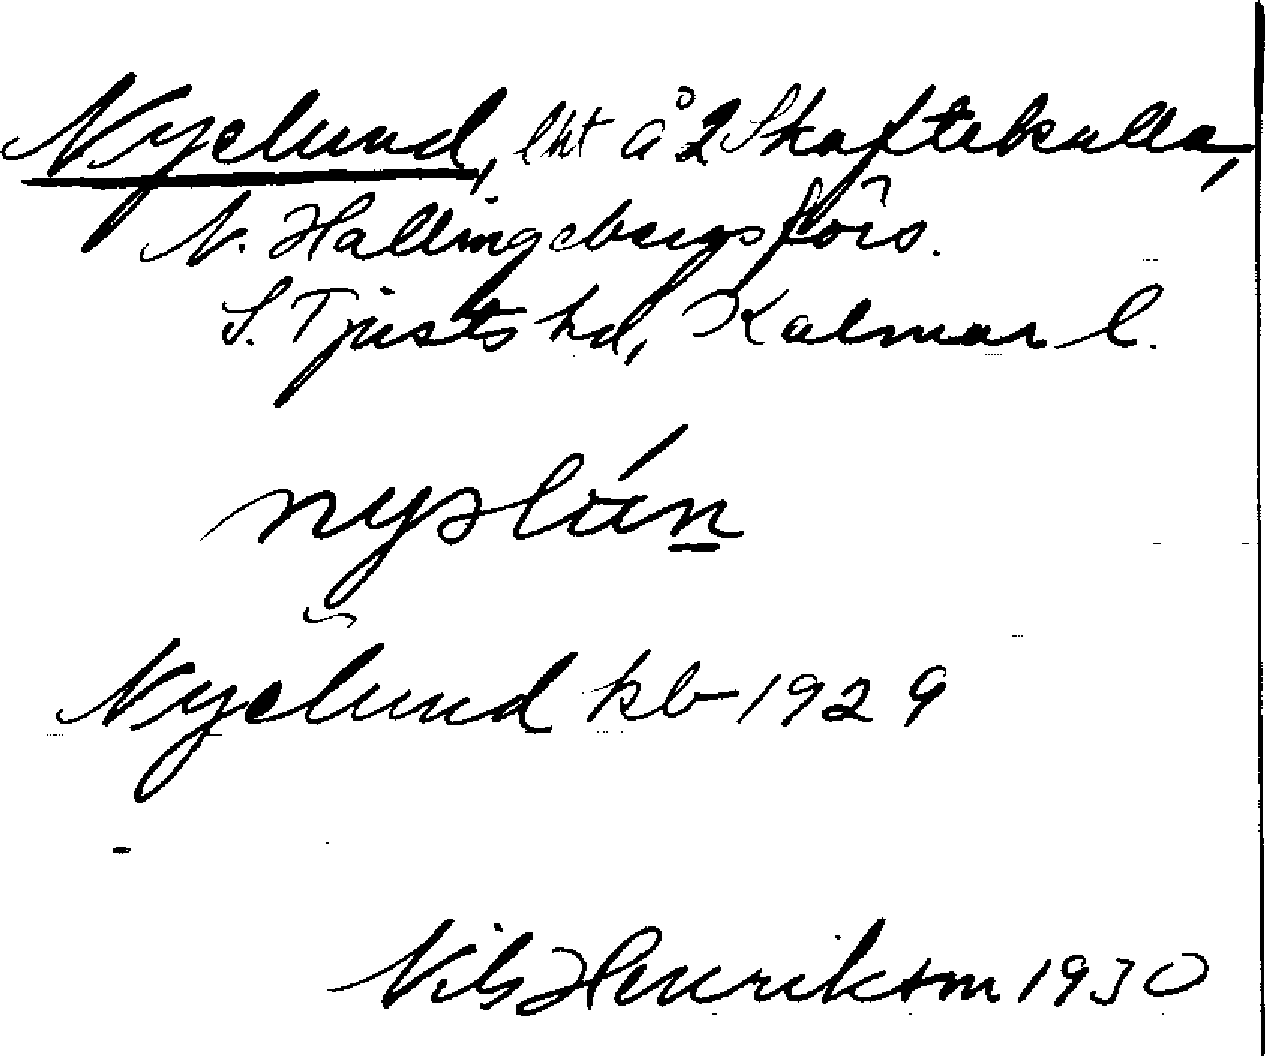 Nyelund, lht å 2 Skaftekulla,
N. Hallingebergs förs.
S. Tjusts hd, Kalmar l.
nyəlún
Nyelund kb 1929
Nils Henrikson 1930